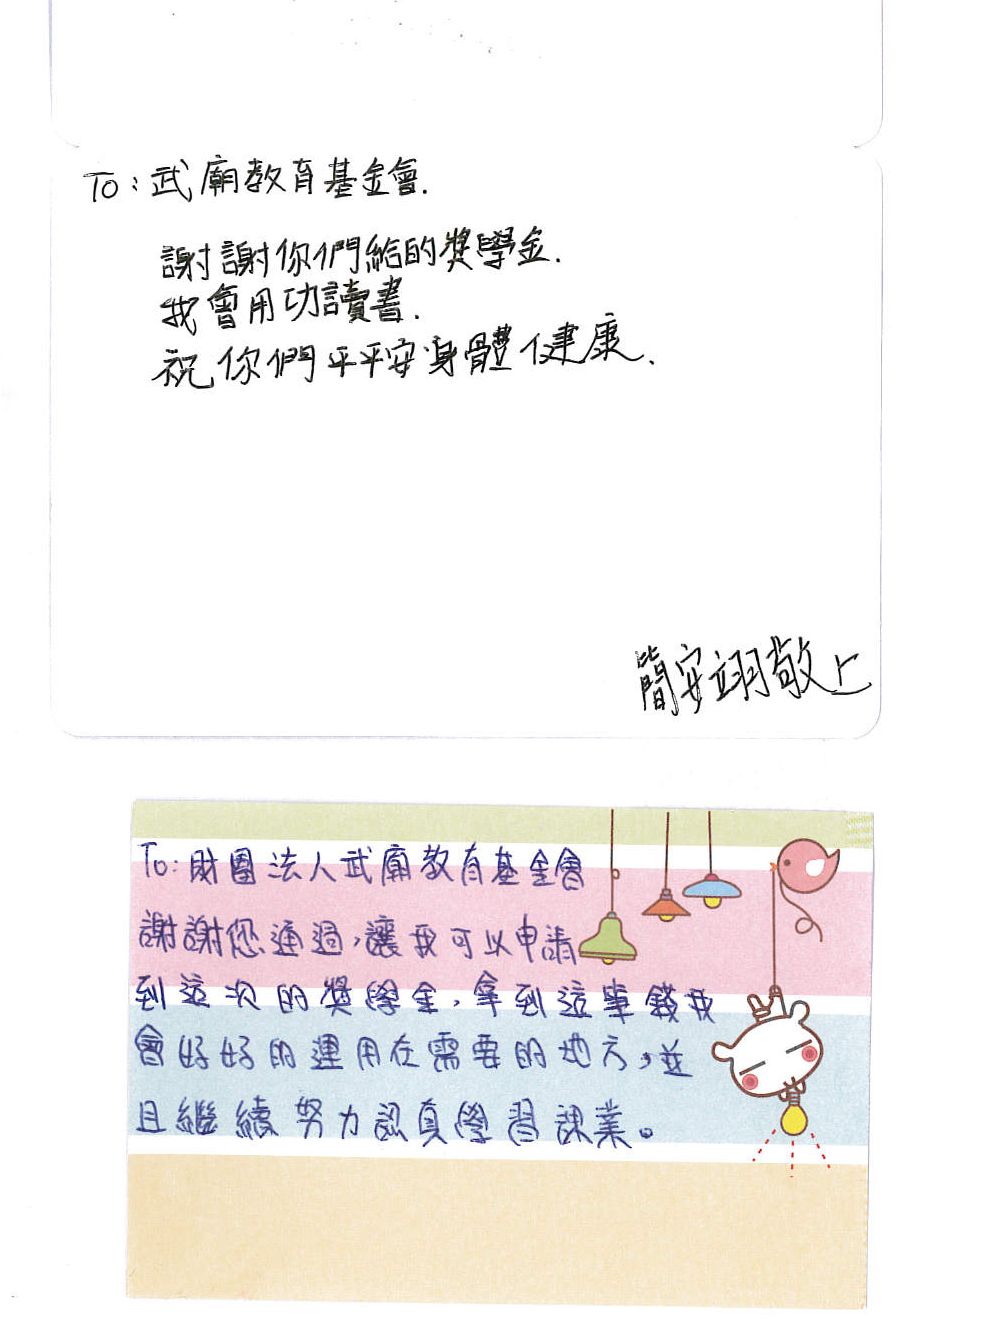 To：武廟教育基金會.
謝謝你們給的獎學金.
我會用功讀書.
祝你們平平安身體健康.
簡安翊敬上
To: 財團法人武廟教育基金會
謝謝您通過,讓我可以申請
到這次的獎學金,拿到這筆錢我
會好好的運用在需要的地方,並
且繼續努力認真學習課業。